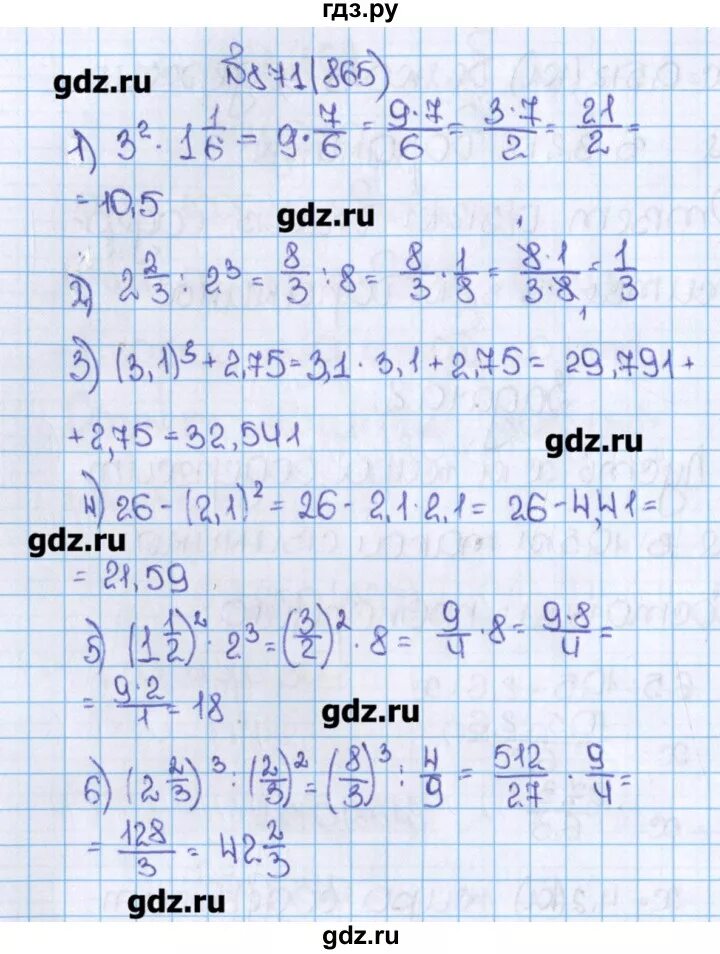 гдз.ру
gdz.ru
№871(865)
1) 3² · 1 1/6 = 9 · 7/6 = 9·7/6 = 3·7/2 = 21/2 =
= 10,5
gdz.ru
2) 2 2/3 : 2³ = 8/3 : 8 = 8/3 · 1/8 = 8·1/3·8 = 1/3
3) (3,1)³ + 2,75 = 3,1 · 3,1 + 2,75 = 29,791 +
+ 2,75 = 32,541
gdz.ru
4) 26 - (2,1)² = 26 - 2,1 · 2,1 = 26 - 4,41 =
gdz.ru
= 21,59
5) (1 1/2)² · 2³ = (3/2)² · 8 = 9/4 · 8 = 9·8/4 =
= 9·2/1 = 18
gdz.ru
6) (2 2/3)³ : (2/3)² = (8/3)³ : 4/9 = 512/27 · 9/4 =
= 128/3 = 42 2/3
gdz.ru
gdz.ru